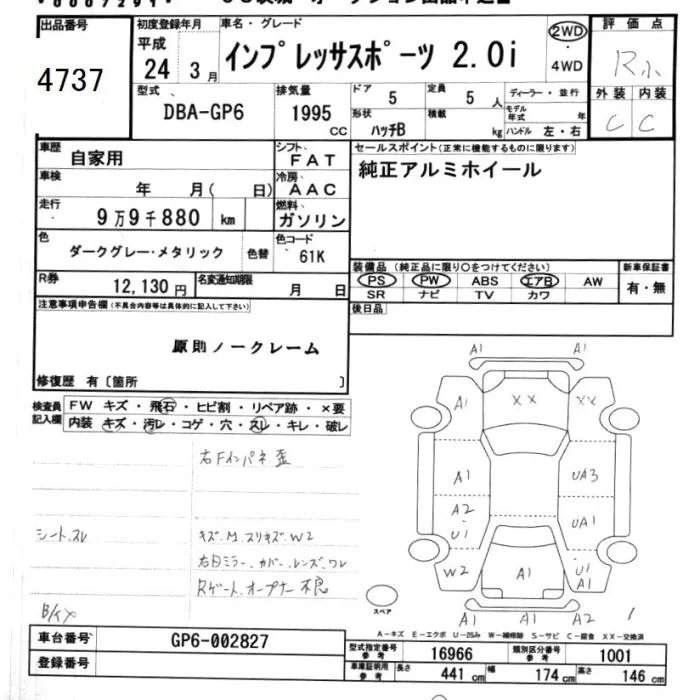 出品番号
4737
初度登録年月
平成
24 3月
車名・グレード
インプレッサスポーツ 2.0i
2WD
・
4WD
評価点
R小
外装 内装
C C
型式
DBA-GP6
排気量
1995
CC
ドア
5
定員
5 人
形状
ハッチB
積載
kg
ディーラー・並行
モデル年式 年
ハンドル 左・右
車歴
自家用
シフト
FAT
車検
年 月( 日)
冷房
AAC
走行
9万9千880 km
燃料
ガソリン
色
ダークグレー・メタリック
色替
色コード
61K
R券
12,130円
名変通知期限
月 日
セールスポイント(正常に機能するものに限ります)
純正アルミホイール
装備品(純正品に限り○をつけてください)
PS PW ABS エアB AW
SR ナビ TV カワ
新車保証書
有・無
後日品
注意事項申告欄(不具合内容等は具体的に記入して下さい)
原則ノークレーム
修復歴 有〔箇所 〕
検査員記入欄
FW キズ・飛石・ヒビ割・リペア跡・×要
内装 キズ・汚レ・コゲ・穴・スレ・キレ・破レ
右Fインパネ歪
シート、スレ
キズ.M.スリキズ.W2
右Dミラー、カバー、レンズ、ワレ
Rゲート、オープナー不良
A1 A1
A1 XX XX
A1 UA3
A2
U1 UA1
W2 A1 U1
A1
A1 A1 A2
スペア
A－キズ E－エクボ U－凹み W－補修跡 S－サビ C－腐食 XX－交換済
車台番号
GP6-002827
登録番号
型式指定番号
参考
16966
類別区分番号
参考
1001
車庫証明用
参考
長さ 441 cm 幅 174 cm 高さ 146 cm